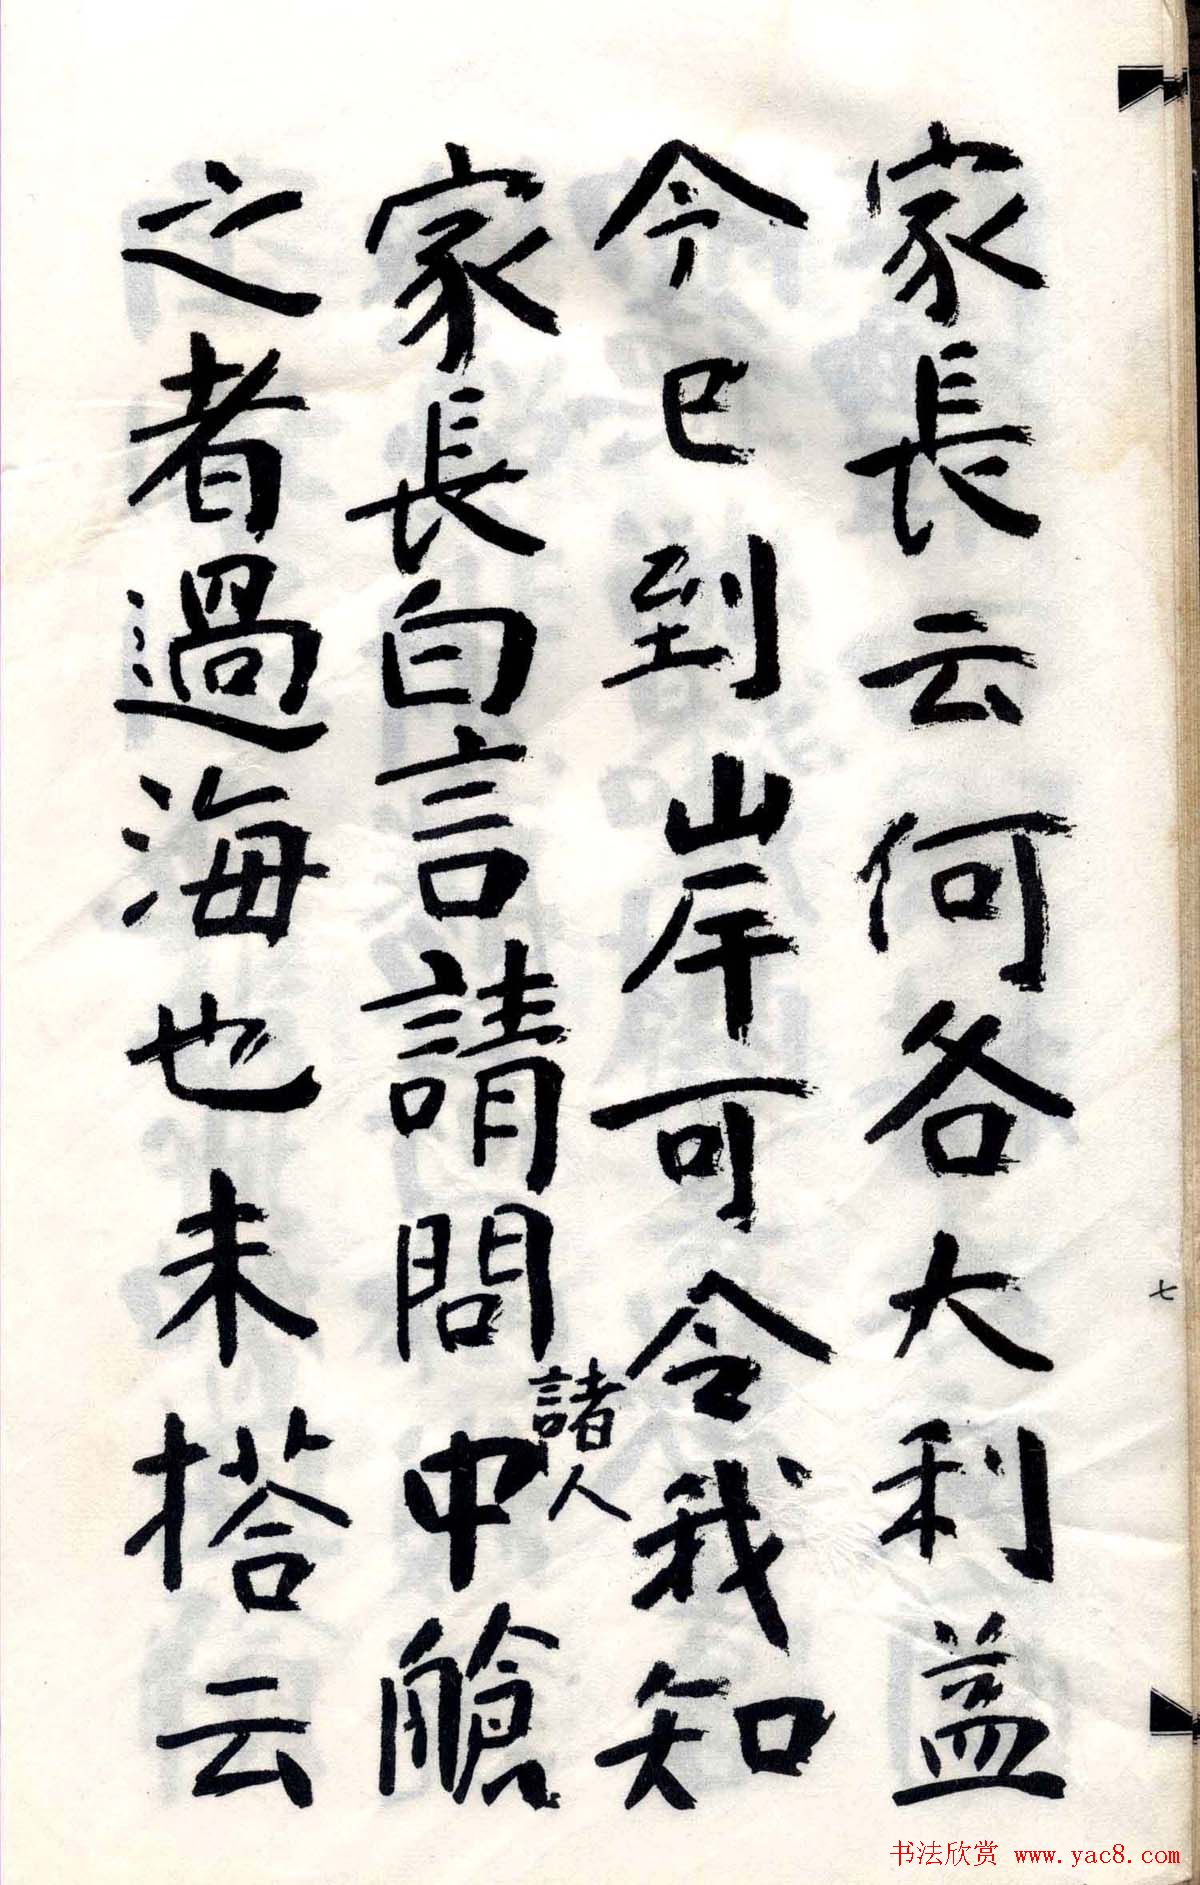 家長云何各大利益
今已到岸可令我知
家長白言請問諸人中艙
之者過海也未搭云
七
书法欣赏 www.yac8.com